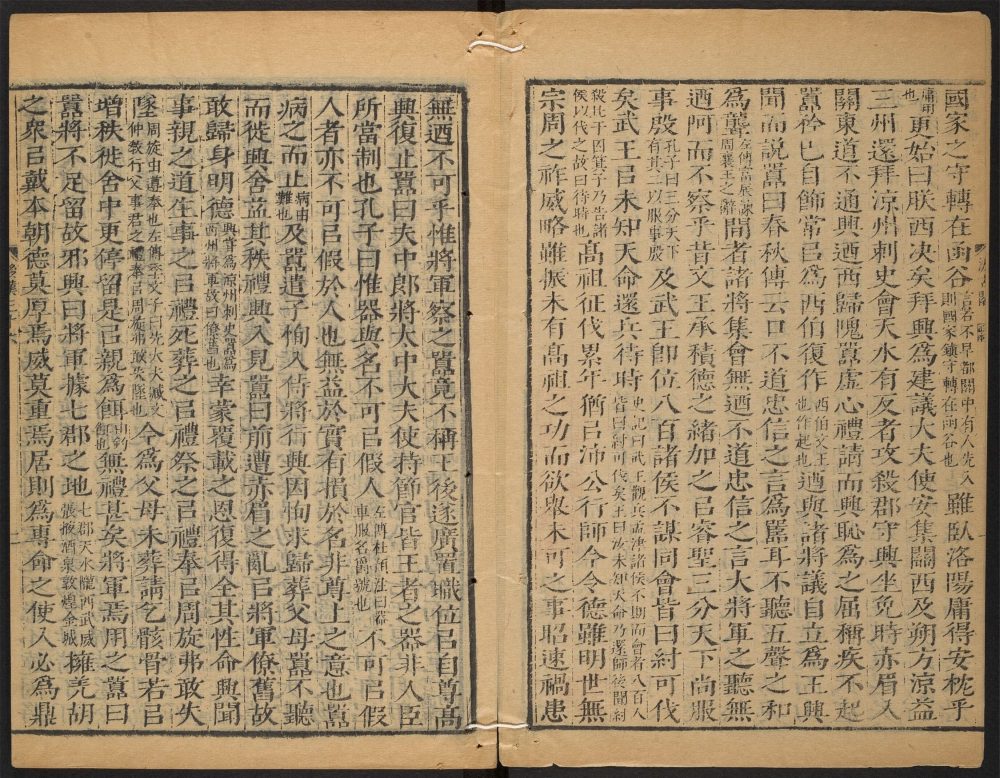 國家之守轉在函谷言若不早都關中有人先入則國家鎮守轉在函谷也雖臥洛陽庸得安枕乎
庸用也更始曰朕西決矣拜興為諫議大夫使安集關西及朔方涼益
三州還拜涼州刺史會天水有反者攻殺郡守興坐免時赤眉入
關東道不通興迺西歸隗囂虛心禮請而興恥為之屈稱疾不起
囂矜己自飾常㠯為西伯復作西伯文王也作起也迺與諸將議自立為王興
聞而說囂曰春秋傳云口不道忠信之言為嚚耳不聽五聲之和
為聾左傳富辰諫周襄王之辭閒者諸將集會無迺不道忠信之言大將軍之聽無
迺阿而不察乎昔文王承積德之緒加之㠯睿聖三分天下尚服
事殷孔子曰三分天下有其二以服事殷及武王即位八百諸侯不謀同會皆曰紂可伐
矣武王㠯未知天命還兵待時史記曰武王觀兵孟津諸侯不期而會者八百人皆曰紂可伐矣王曰汝未知天命乃還師後聞紂
殺比干囚箕子乃告諸侯以伐之故曰待時也高祖征伐累年猶㠯沛公行師今令德雖明世無
宗周之祚威略雖振未有高祖之功而欲舉未可之事昭速禍患
無迺不可乎惟將軍察之囂竟不稱王後遂廣置職位㠯自尊高
興復止囂曰夫中郎將太中大夫使持節官皆王者之器非人臣
所當制也孔子曰惟器與名不可㠯假人左傳杜預注曰器車服名爵號也不可㠯假
人者亦不可㠯假於人也無益於實有損於名非尊上之意也囂
病之而止病由難也及囂遣子恂入侍將行興因恂求歸葬父母囂不聽
而徙興舍益其秩禮興入見囂曰前遭赤眉之亂㠯將軍僚舊故
敢歸身明德興嘗為涼州刺史囂為西州將軍故曰僚舊也幸蒙覆載之恩復得全其性命興聞
事親之道生事之㠯禮死葬之㠯禮祭之㠯禮奉㠯周旋弗敢失
墜周旋由遵奉也左傳季文子曰先大夫臧文仲教行父事君之禮奉㠯周旋弗敢失墜也今為父母未葬請乞骸骨若㠯
增秩徙舍中更停留是㠯親為餌猶釣餌也無禮甚矣將軍焉用之囂曰
囂將不足留故邪興曰將軍據七郡之地七郡天水隴西武威張掖酒泉敦煌金城擁羌胡
之眾㠯戴本朝德莫厚焉威莫重焉居則為專命之使入必為鼎